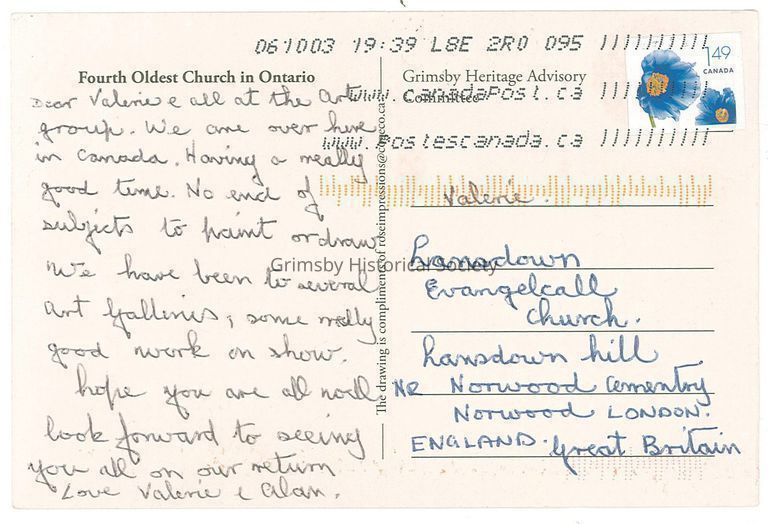 061003 19:39 L8E 2R0 095
149
CANADA
www.CanadaPost.ca
www.postescanada.ca
Fourth Oldest Church in Ontario
Dear Valerie & all at the Art
group. We are over here
in Canada. Having a really
good time. No end of
subjects to paint or draw
We have been to several
Art Galleries, some really
good work on show.
hope you are all well
look forward to seeing
you all on our return
Love Valerie & Alan.
The drawing is compliments of roseimpressions@cogeco.ca
Grimsby Heritage Advisory
Committee
Valerie.
Lansdown
Evangelcall
Church.
Lansdown hill
NR Norwood Cementry
Norwood LONDON.
ENGLAND. Great Britain
Grimsby Historical Society